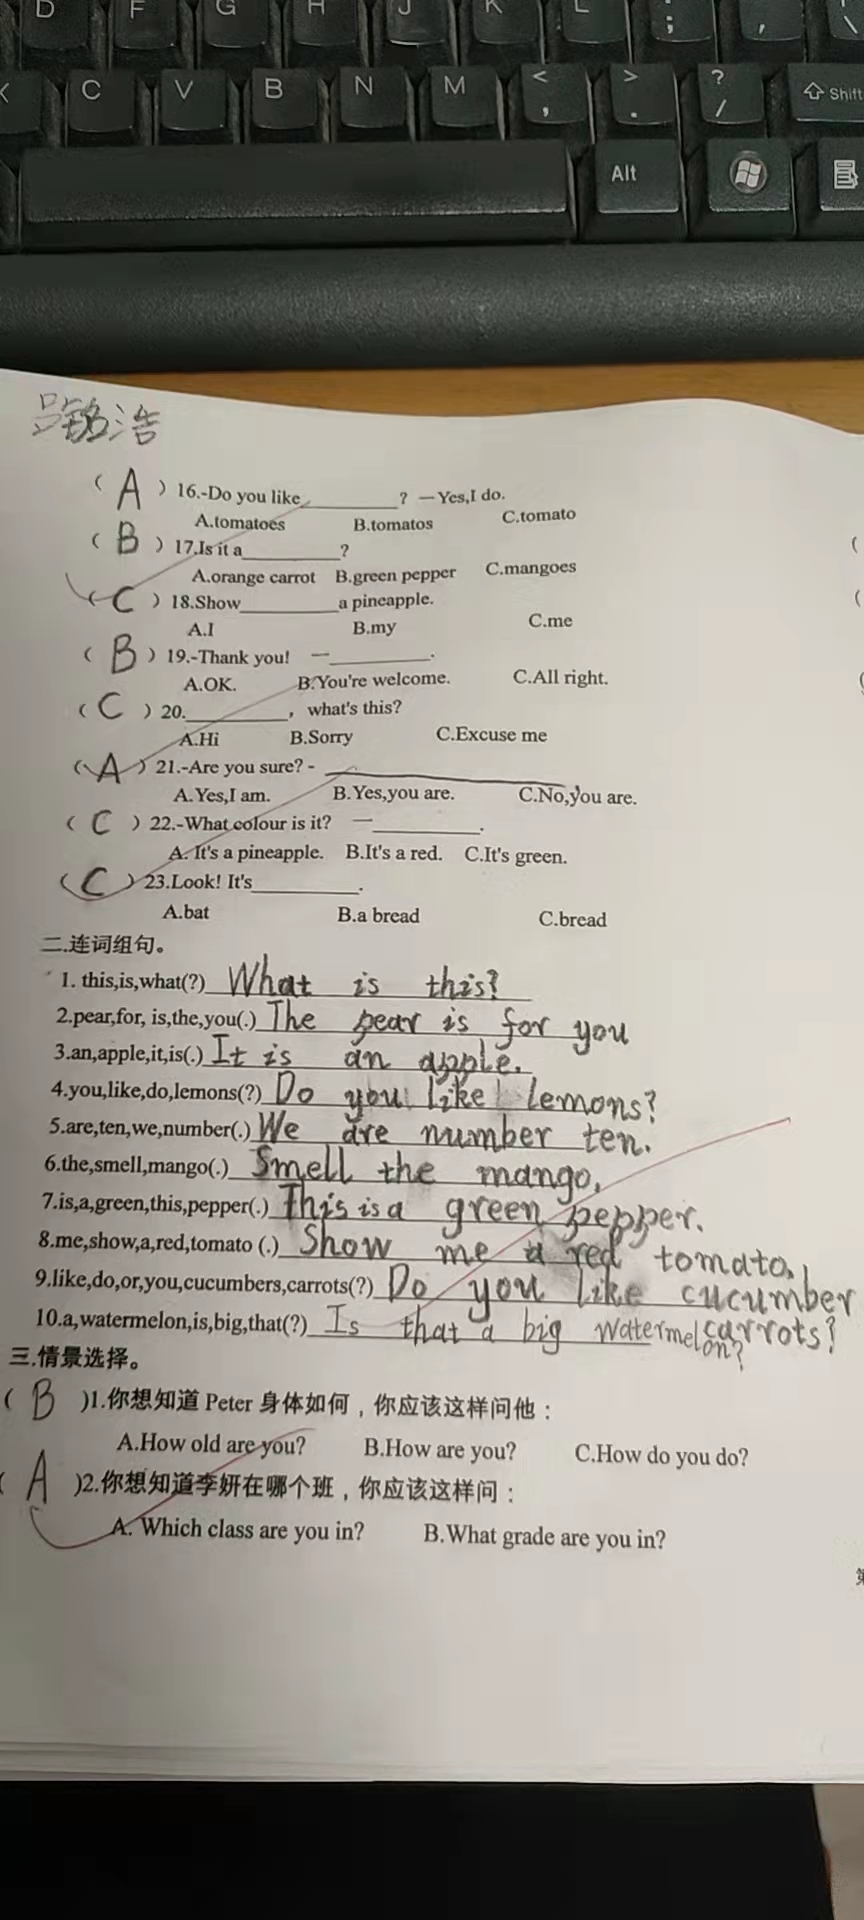 D F G H J K L ; ,
X C V B N M < , > . ? / Shift
Alt
吕铭浩
( A ) 16.-Do you like__________? —Yes,I do.
A.tomatoes B.tomatos C.tomato
( B ) 17.Is it a__________?
A.orange carrot B.green pepper C.mangoes
( C ) 18.Show__________a pineapple.
A.I B.my C.me
( B ) 19.-Thank you! —__________.
A.OK. B.You're welcome. C.All right.
( C ) 20.__________, what's this?
A.Hi B.Sorry C.Excuse me
( A ) 21.-Are you sure? - __________
A.Yes,I am. B.Yes,you are. C.No,you are.
( C ) 22.-What colour is it? —__________.
A. It's a pineapple. B.It's a red. C.It's green.
( C ) 23.Look! It's__________.
A.bat B.a bread C.bread
二.连词组句。
1. this,is,what(?) What is this?
2.pear,for, is,the,you(.) The pear is for you
3.an,apple,it,is(.) It is an apple.
4.you,like,do,lemons(?) Do you like lemons?
5.are,ten,we,number(.) We are number ten.
6.the,smell,mango(.) Smell the mango.
7.is,a,green,this,pepper(.) This is a green pepper.
8.me,show,a,red,tomato (.) Show me a red tomato.
9.like,do,or,you,cucumbers,carrots(?) Do you like cucumber
carrots?
10.a,watermelon,is,big,that(?) Is that a big watermelon?
三.情景选择。
( B )1.你想知道 Peter 身体如何，你应该这样问他：
A.How old are you? B.How are you? C.How do you do?
( A )2.你想知道李妍在哪个班，你应该这样问：
A. Which class are you in? B.What grade are you in?